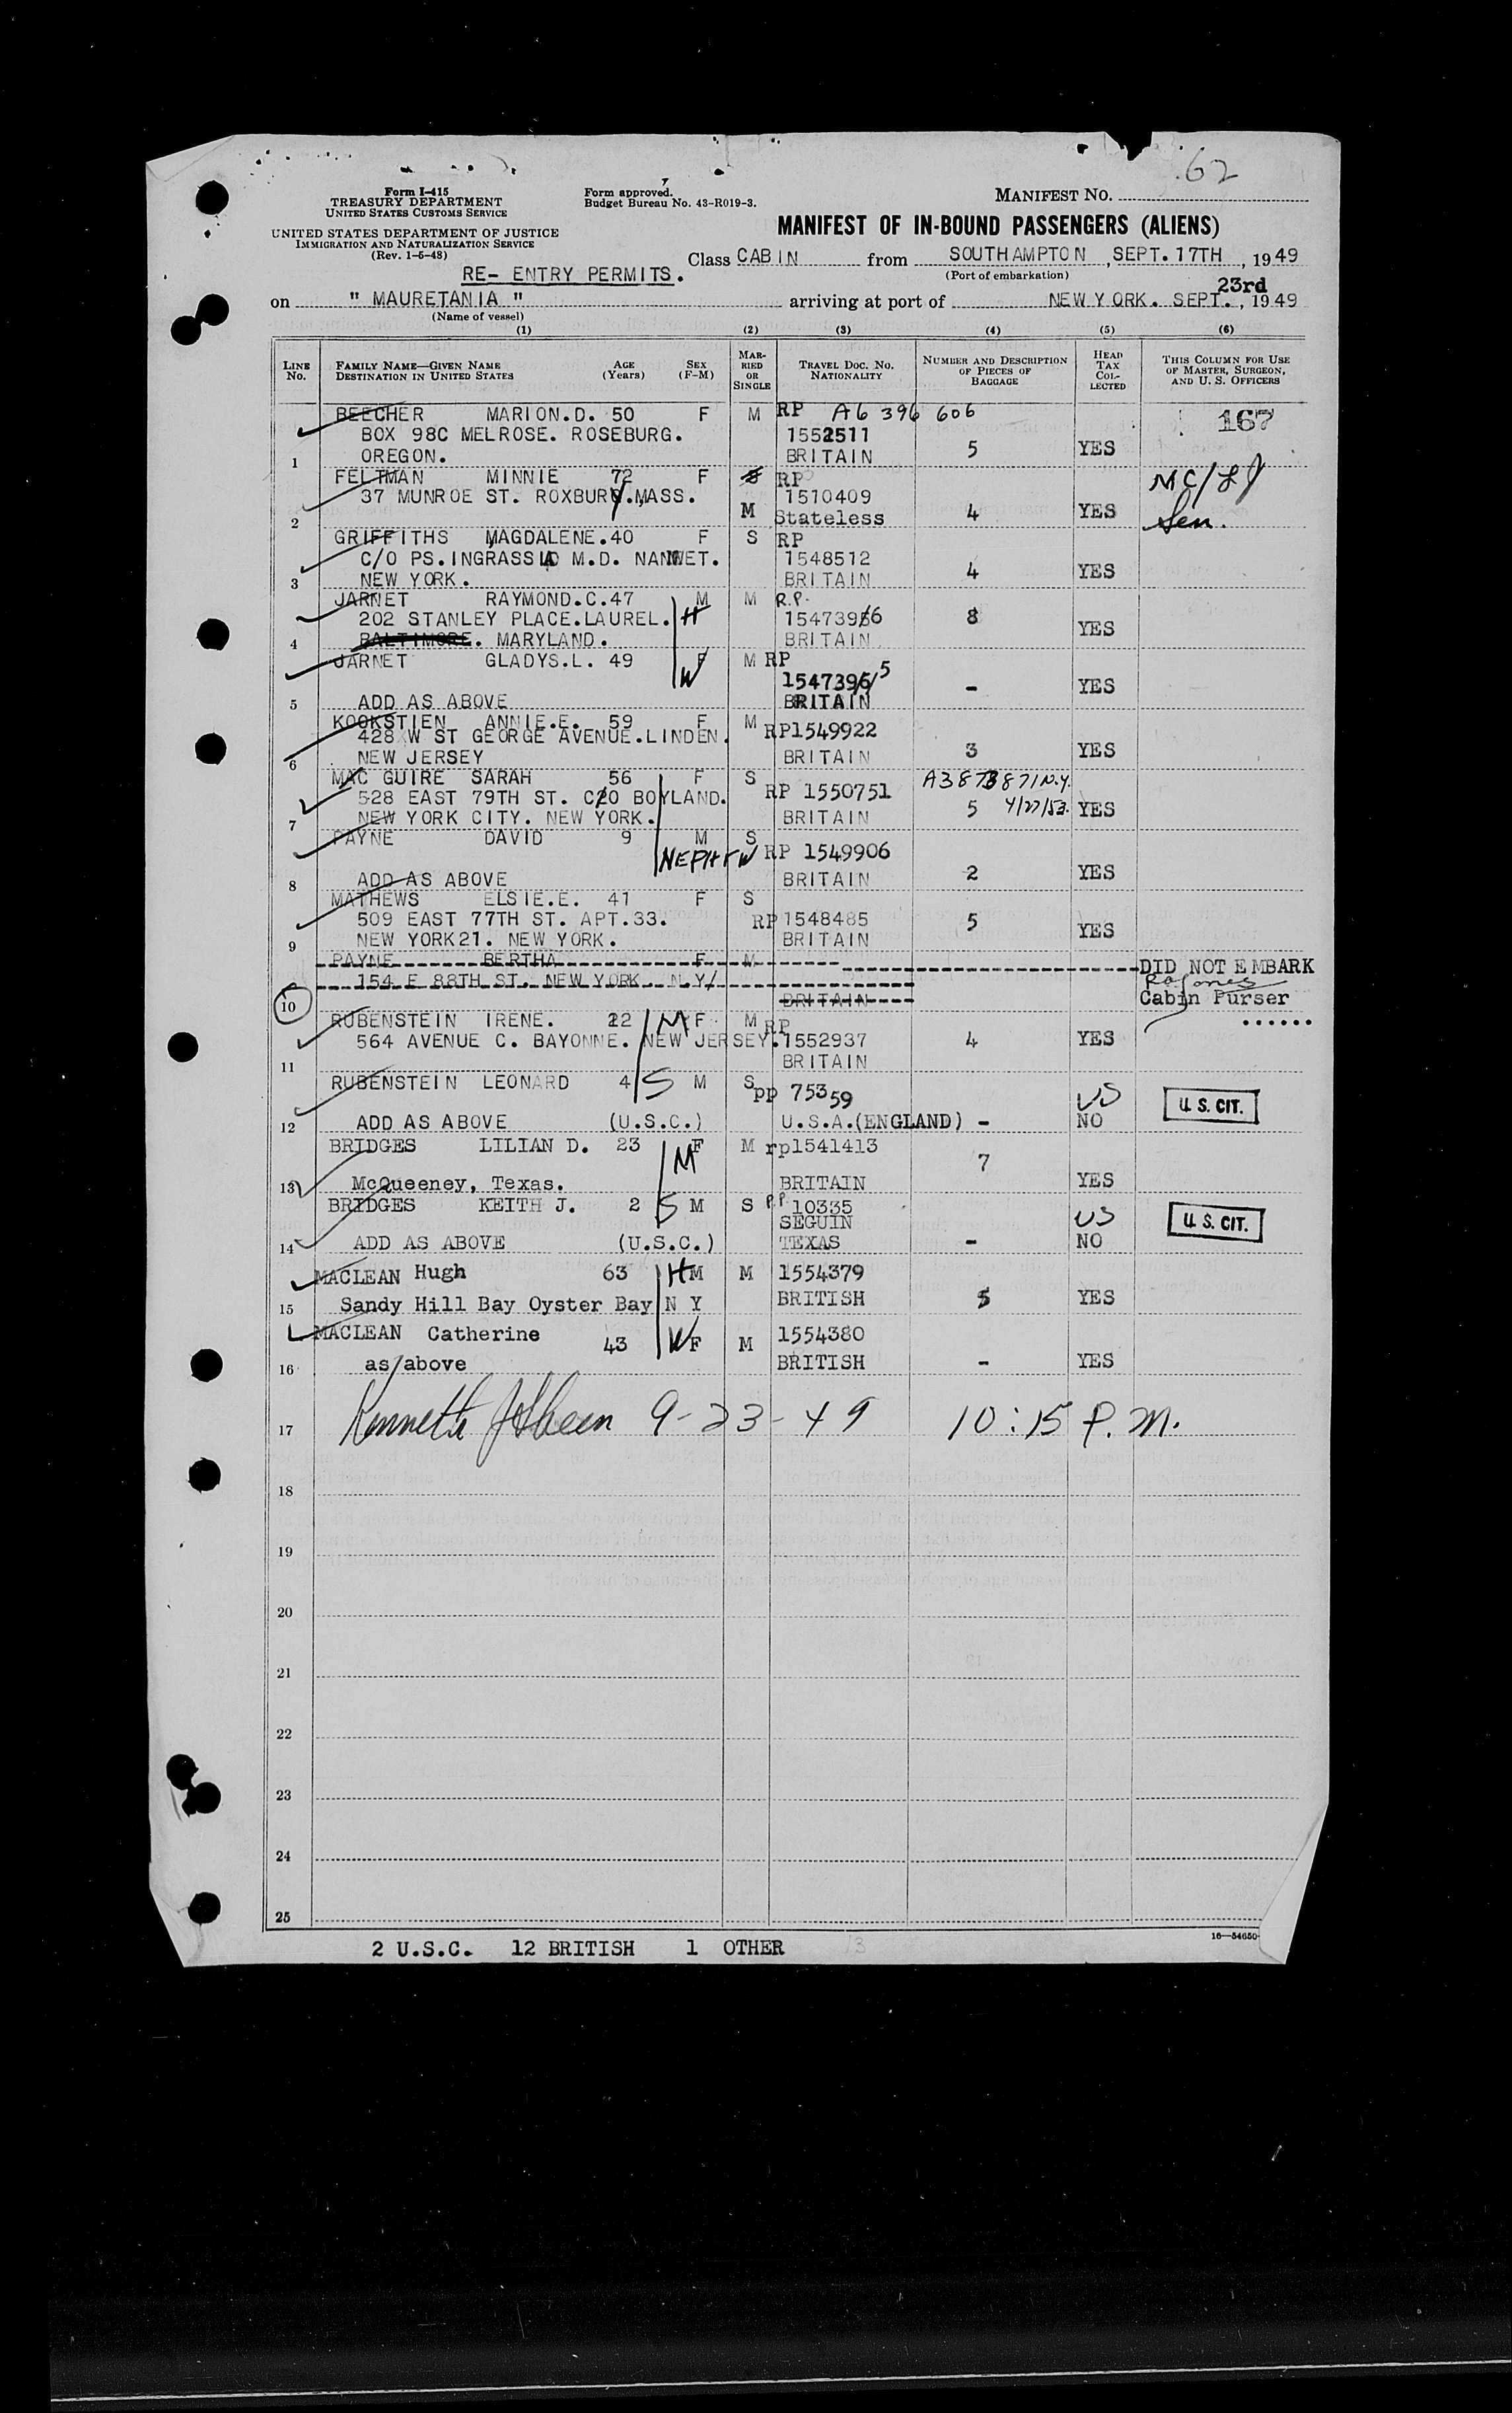 62
Form I-415
TREASURY DEPARTMENT
UNITED STATES CUSTOMS SERVICE
UNITED STATES DEPARTMENT OF JUSTICE
IMMIGRATION AND NATURALIZATION SERVICE
(Rev. 1-5-48)
Form approved.
Budget Bureau No. 43-R019-3.
MANIFEST NO.
MANIFEST OF IN-BOUND PASSENGERS (ALIENS)
Class CABIN from SOUTHAMPTON, SEPT. 17TH, 1949
(Port of embarkation)
RE- ENTRY PERMITS.
23rd
on " MAURETANIA " arriving at port of NEW YORK. SEPT., 1949
(Name of vessel)
(1) (2) (3) (4) (5) (6)
LINE No. FAMILY NAME—GIVEN NAME DESTINATION IN UNITED STATES AGE (Years) SEX (F-M) MARRIED OR SINGLE TRAVEL DOC. NO. NATIONALITY NUMBER AND DESCRIPTION OF PIECES OF BAGGAGE HEAD TAX COLLECTED THIS COLUMN FOR USE OF MASTER, SURGEON, AND U. S. OFFICERS
BEECHER MARION.D. 50 F M RP A6 396 606 167
BOX 98C MELROSE. ROSEBURG. 1552511
1 OREGON. BRITAIN 5 YES
FELTMAN MINNIE 72 F S RP
37 MUNROE ST. ROXBURY.MASS. 1510409
2 M Stateless 4 YES Sen.
GRIFFITHS MAGDALENE.40 F S RP
C/O PS.INGRASSIA M.D. 1548512
3 NEW YORK. BRITAIN 4 YES
JARNET RAYMOND.C.47 M M R.P.
202 STANLEY PLACE.LAUREL. H 1547396
4 BALTIMORE. MARYLAND. BRITAIN 8 YES
JARNET GLADYS.L. 49 F M RP
W 1547395
5 ADD AS ABOVE BRITAIN - YES
KOOKSTIEN ANNIE.E. 59 F M RP1549922
428 W ST GEORGE AVENUE.LINDEN.
6 NEW JERSEY BRITAIN 3 YES
MAC GUIRE SARAH 56 F S A3873871 N.Y.
528 EAST 79TH ST. C/O BOYLAND. RP 1550751
7 NEW YORK CITY. NEW YORK. BRITAIN 5 4/27/53. YES
PAYNE DAVID 9 M S
NEPHEW RP 1549906
8 ADD AS ABOVE BRITAIN 2 YES
MATHEWS ELSIE.E. 41 F S
509 EAST 77TH ST. APT.33. RP 1548485 5
9 NEW YORK21. NEW YORK. BRITAIN YES
PAYNE BERTHA F M DID NOT EMBARK
154 E 88TH ST. NEW YORK. N.Y/
10 BRITAIN Cabin Purser
RUBENSTEIN IRENE. 22 M F M RP
564 AVENUE C. BAYONNE. NEW JERSEY. 1552937 4 YES
11 BRITAIN
RUBENSTEIN LEONARD 4 S M S pp 75359 US U. S. CIT.
12 ADD AS ABOVE (U.S.C.) U.S.A.(ENGLAND) - NO
BRIDGES LILIAN D. 23 M F M rp1541413
7
13 McQueeney, Texas. BRITAIN YES
BRIDGES KEITH J. 2 S M S P.P. 10335
SEGUIN US U. S. CIT.
14 ADD AS ABOVE (U.S.C.) TEXAS - NO
MACLEAN Hugh 63 H M M 1554379
15 Sandy Hill Bay Oyster Bay N Y BRITISH 5 YES
MACLEAN Catherine 43 W F M 1554380
16 as above BRITISH - YES
17 Kenneth 9-23-49 10:15 P.M.
18
19
20
21
22
23
24
25
2 U.S.C. 12 BRITISH 1 OTHER 13
16—54650